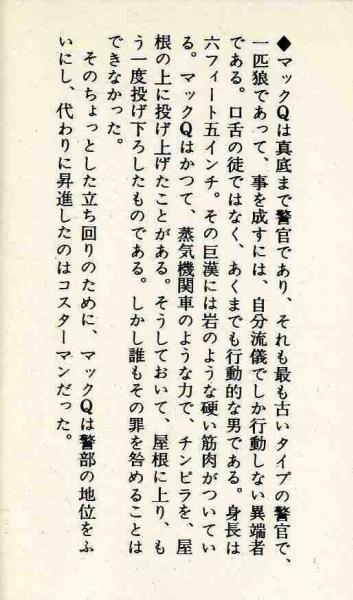 ◆マックQは真底まで警官であり、それも最も古いタイプの警官で、
一匹狼であって、事を成すには、自分流儀でしか行動しない異端者
である。口舌の徒ではなく、あくまでも行動的な男である。身長は
六フィート五インチ。その巨漢には岩のような硬い筋肉がついてい
る。マックQはかつて、蒸気機関車のような力で、チンピラを、屋
根の上に投げ上げたことがある。そうしておいて、屋根に上り、も
う一度投げ下ろしたものである。しかし誰もその罪を咎めることは
できなかった。
そのちょっとした立ち回りのために、マックQは警部の地位をふ
いにし、代わりに昇進したのはコスターマンだった。